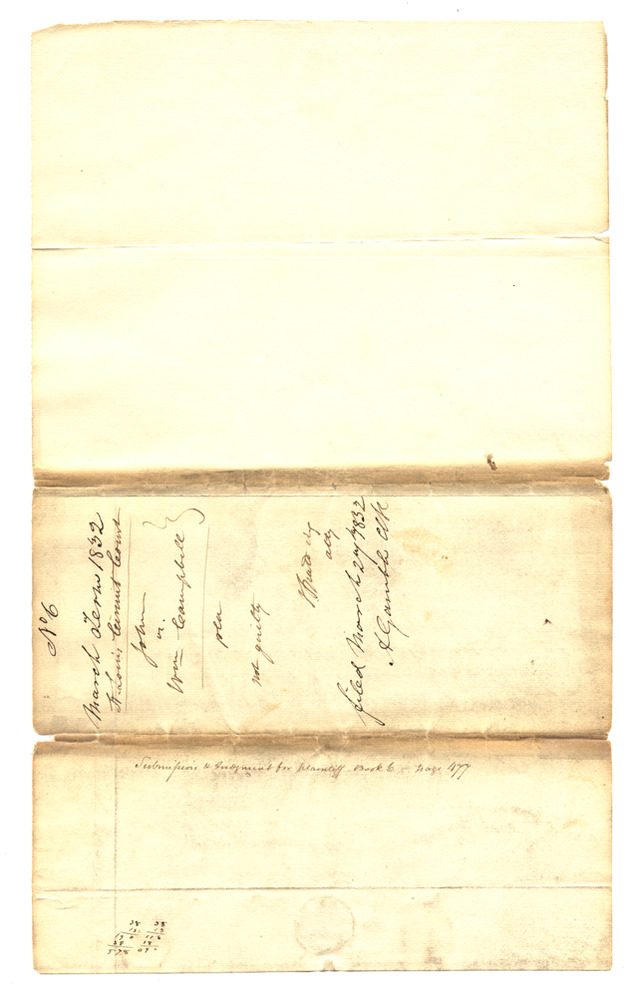 No 6
March Term 1832
St Louis Circuit Court
John
vs.
Wm Campbell
plea
not guilty
atty
filed March 24 1832
A Gamble Clk
Submission & Judgment for plaintiff Book 6 - page 477